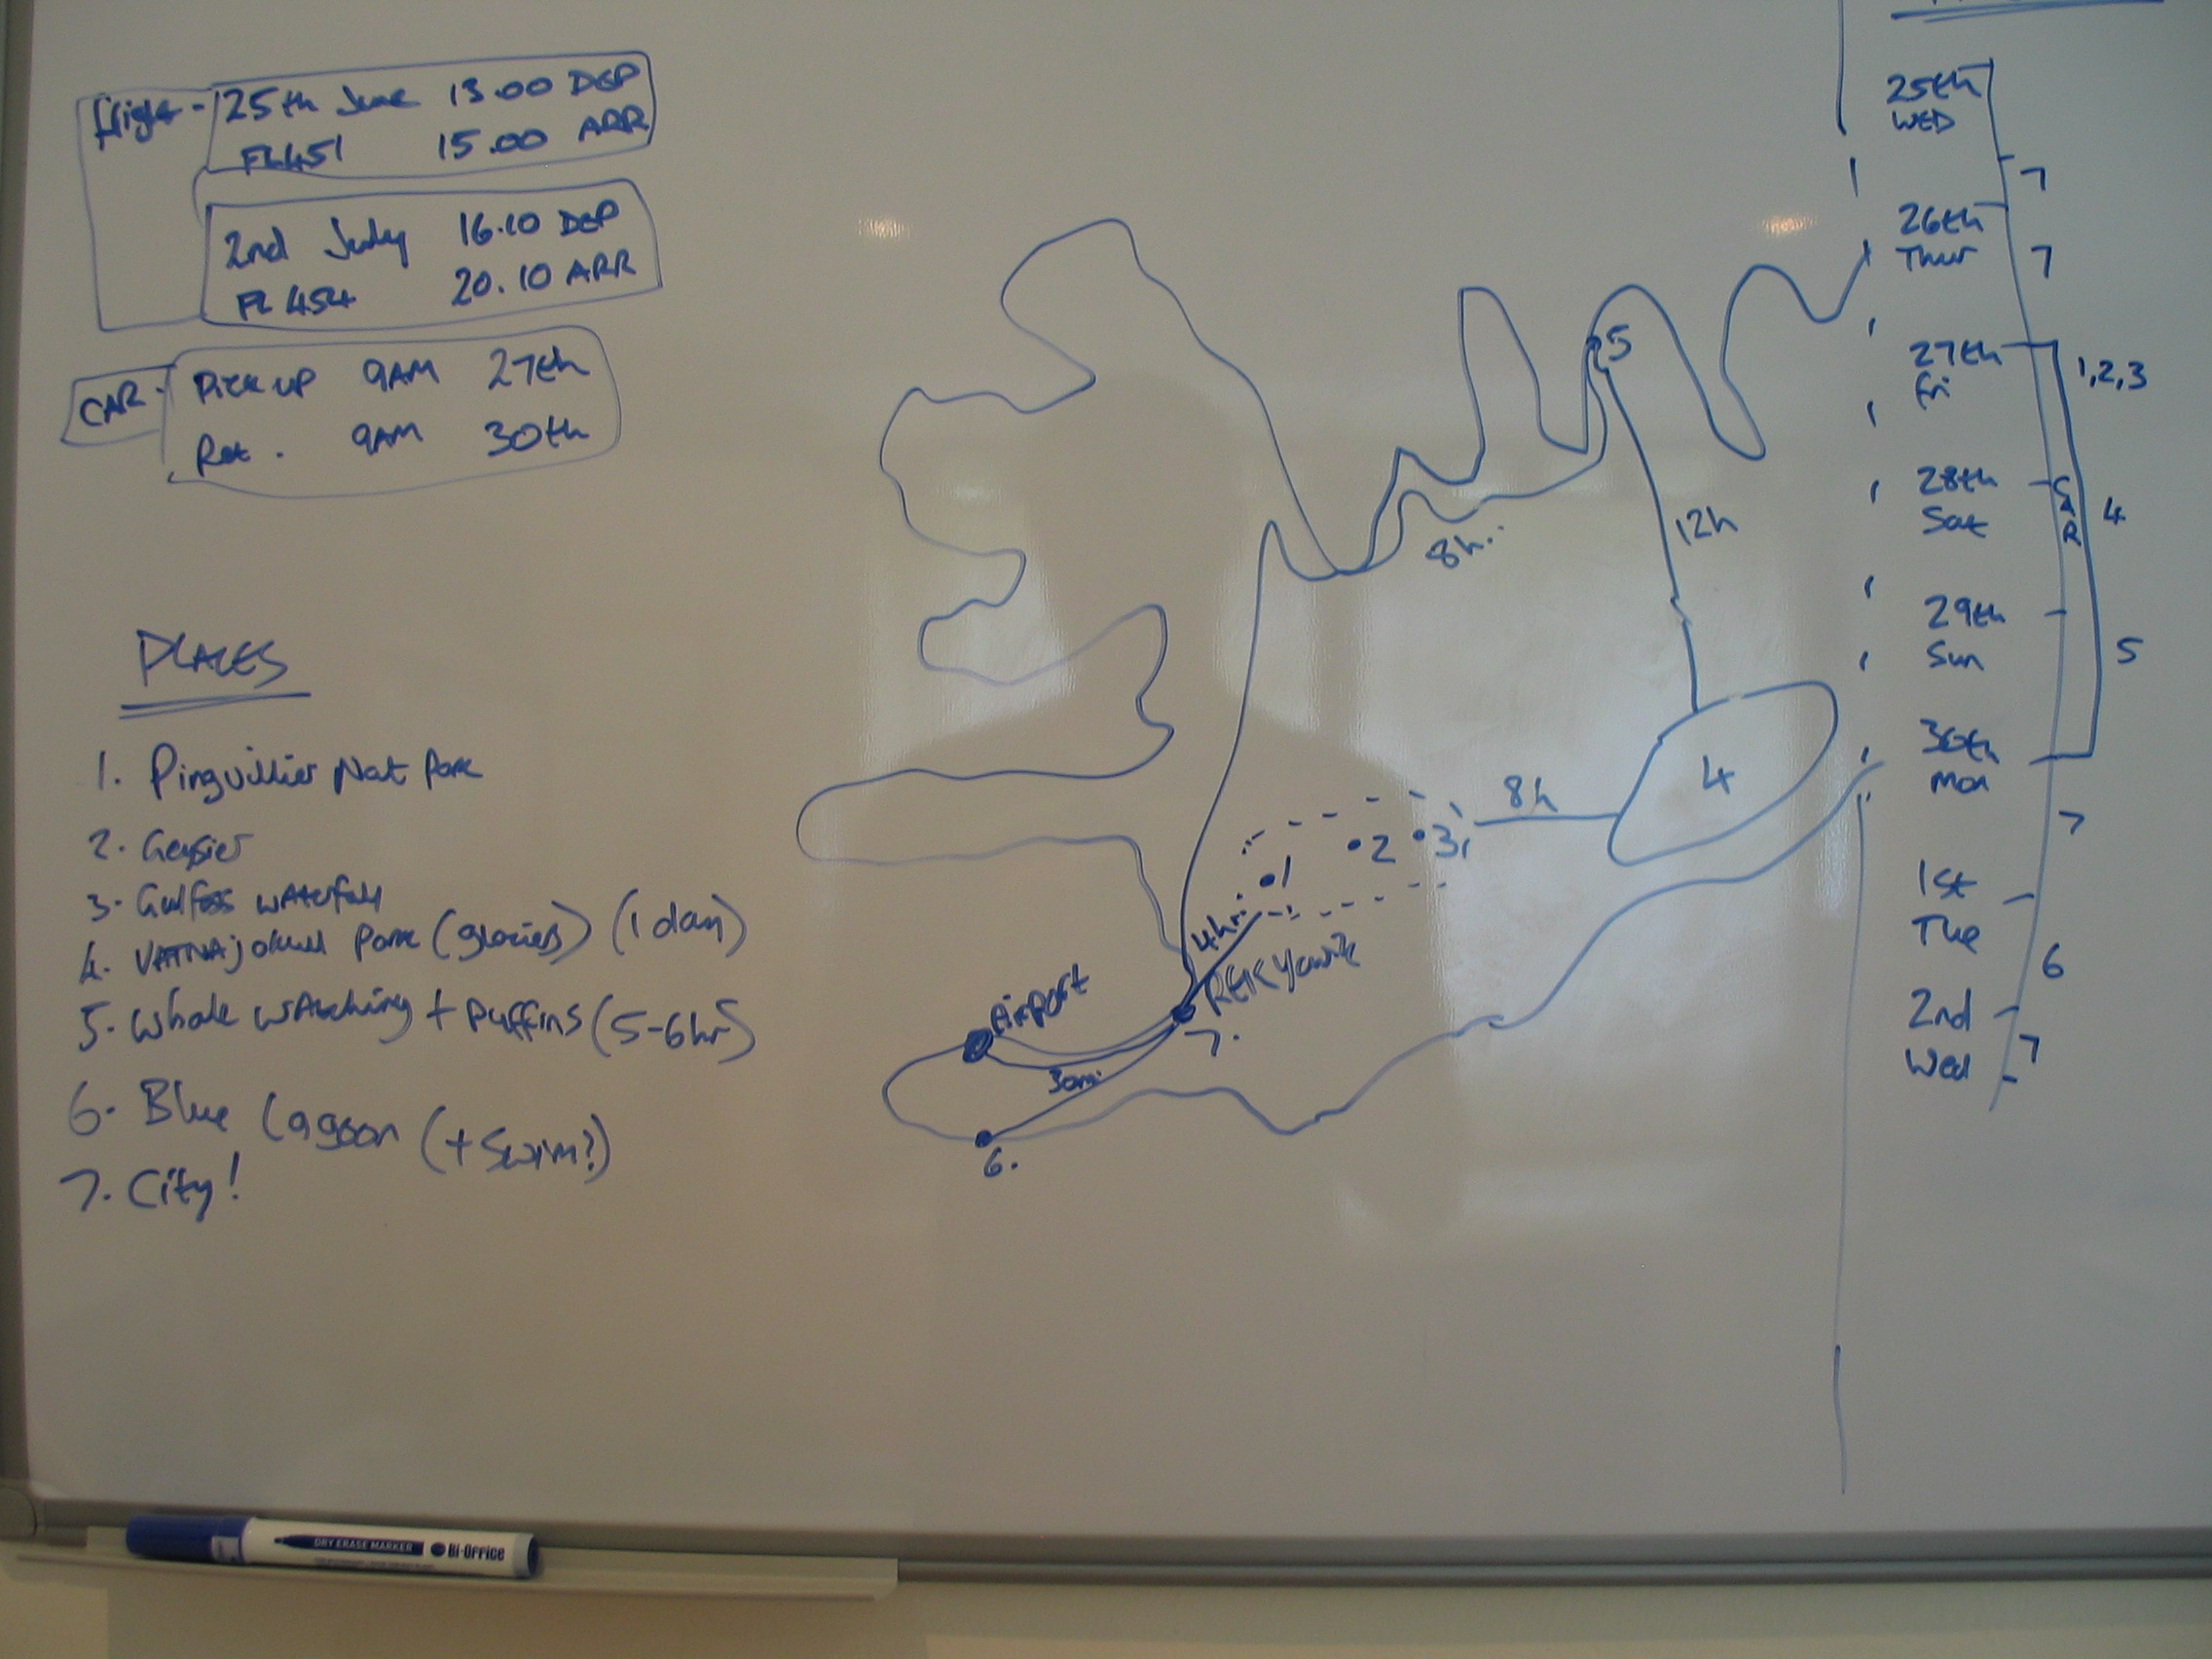 flight - 25th June 13.00 DEP
FL451 15.00 ARR
2nd July 16.10 DEP
FL454 20.10 ARR
CAR - Pick up 9AM 27th
Ret. 9AM 30th
PLACES
1. Pingvillier Nat Park
2. Geysier
3. Gulfoss waterfall
4. VATNAjokull Park (glaciers) (1 day)
5. Whale watching + puffins (5-6hr)
6. Blue Lagoon (+ swim?)
7. City!
5
12h
8h.
4
8h
1
2
3
4hr.
REKYavik
Airport
7.
30m.
6.
25th
WED
7
26th
Thur
7
27th
fri
1,2,3
28th
Sat
CAR
4
29th
Sun
5
30th
Mon
7
1st
Tue
6
2nd
Wed
7
DRY ERASE MARKER Bi-Office